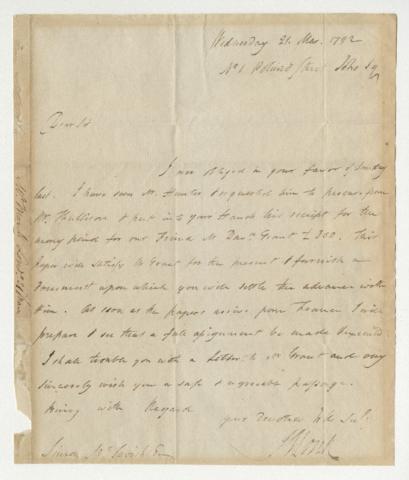 Wednesday 21. Mar. 1792
No. 1 Poland Street
Dear Sir
I was obliged in your favor of Sunday
last. I have seen Mr. Hunter & requested him to procure from
Mr. & put into your Hands his receipt for the
money paid for our Friend Mr. Davd. Grant £ 300. This
paper will satisfy Mr Grant for the present & furnish a
Document upon which you will settle the advance with
him. As soon as the papers arrive from I will
prepare & see that a full assignment be made & executed
I shall trouble you with a Letter to Mr Grant and very
sincerely wish you a safe & agreeable passage.
being with Regard
your Hble Sert.
Simon McTavish Esq